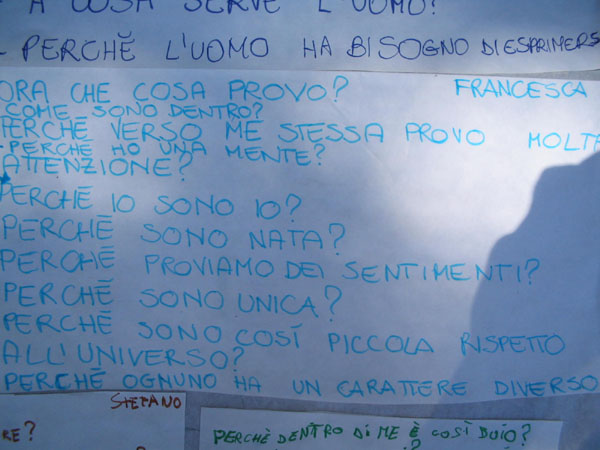 A COSA SERVE L'UOMO?
- PERCHĒ L'UOMO HA BISOGNO DI ESPRIMERS
ORA CHE COSA PROVO? FRANCESCA
COME SONO DENTRO?
PERCHĒ VERSO ME STESSA PROVO MOLTA
- PERCHĒ HO UNA MENTE?
ATTENZIONE?
PERCHĒ IO SONO IO?
PERCHĒ SONO NATA?
PERCHĒ PROVIAMO DEI SENTIMENTI?
PERCHĒ SONO UNICA?
PERCHĒ SONO COSÍ PICCOLA RISPETTO
ALL'UNIVERSO?
PERCHĒ OGNUNO HA UN CARATTERE DIVERSO
STEFANO
RE?
PERCHÈ DENTRO DI ME È COSÌ BUIO?